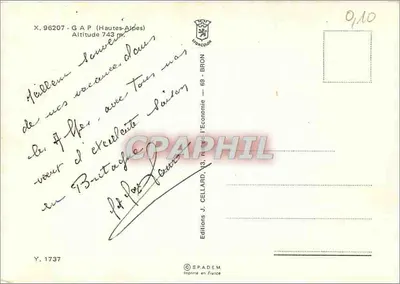 X. 96207 - GAP (Hautes-Alpes)
Altitude 743 m.
0,10
Meilleur souvenir
de nos vacances dans
les Alpes, avec tous nos
voeux d'excellente saison
en Bretagne
CPAPHIL
Editions J. CELLARD, l'Economie - 69 - BRON
Y. 1737
© EPADEM
Imprimé en France